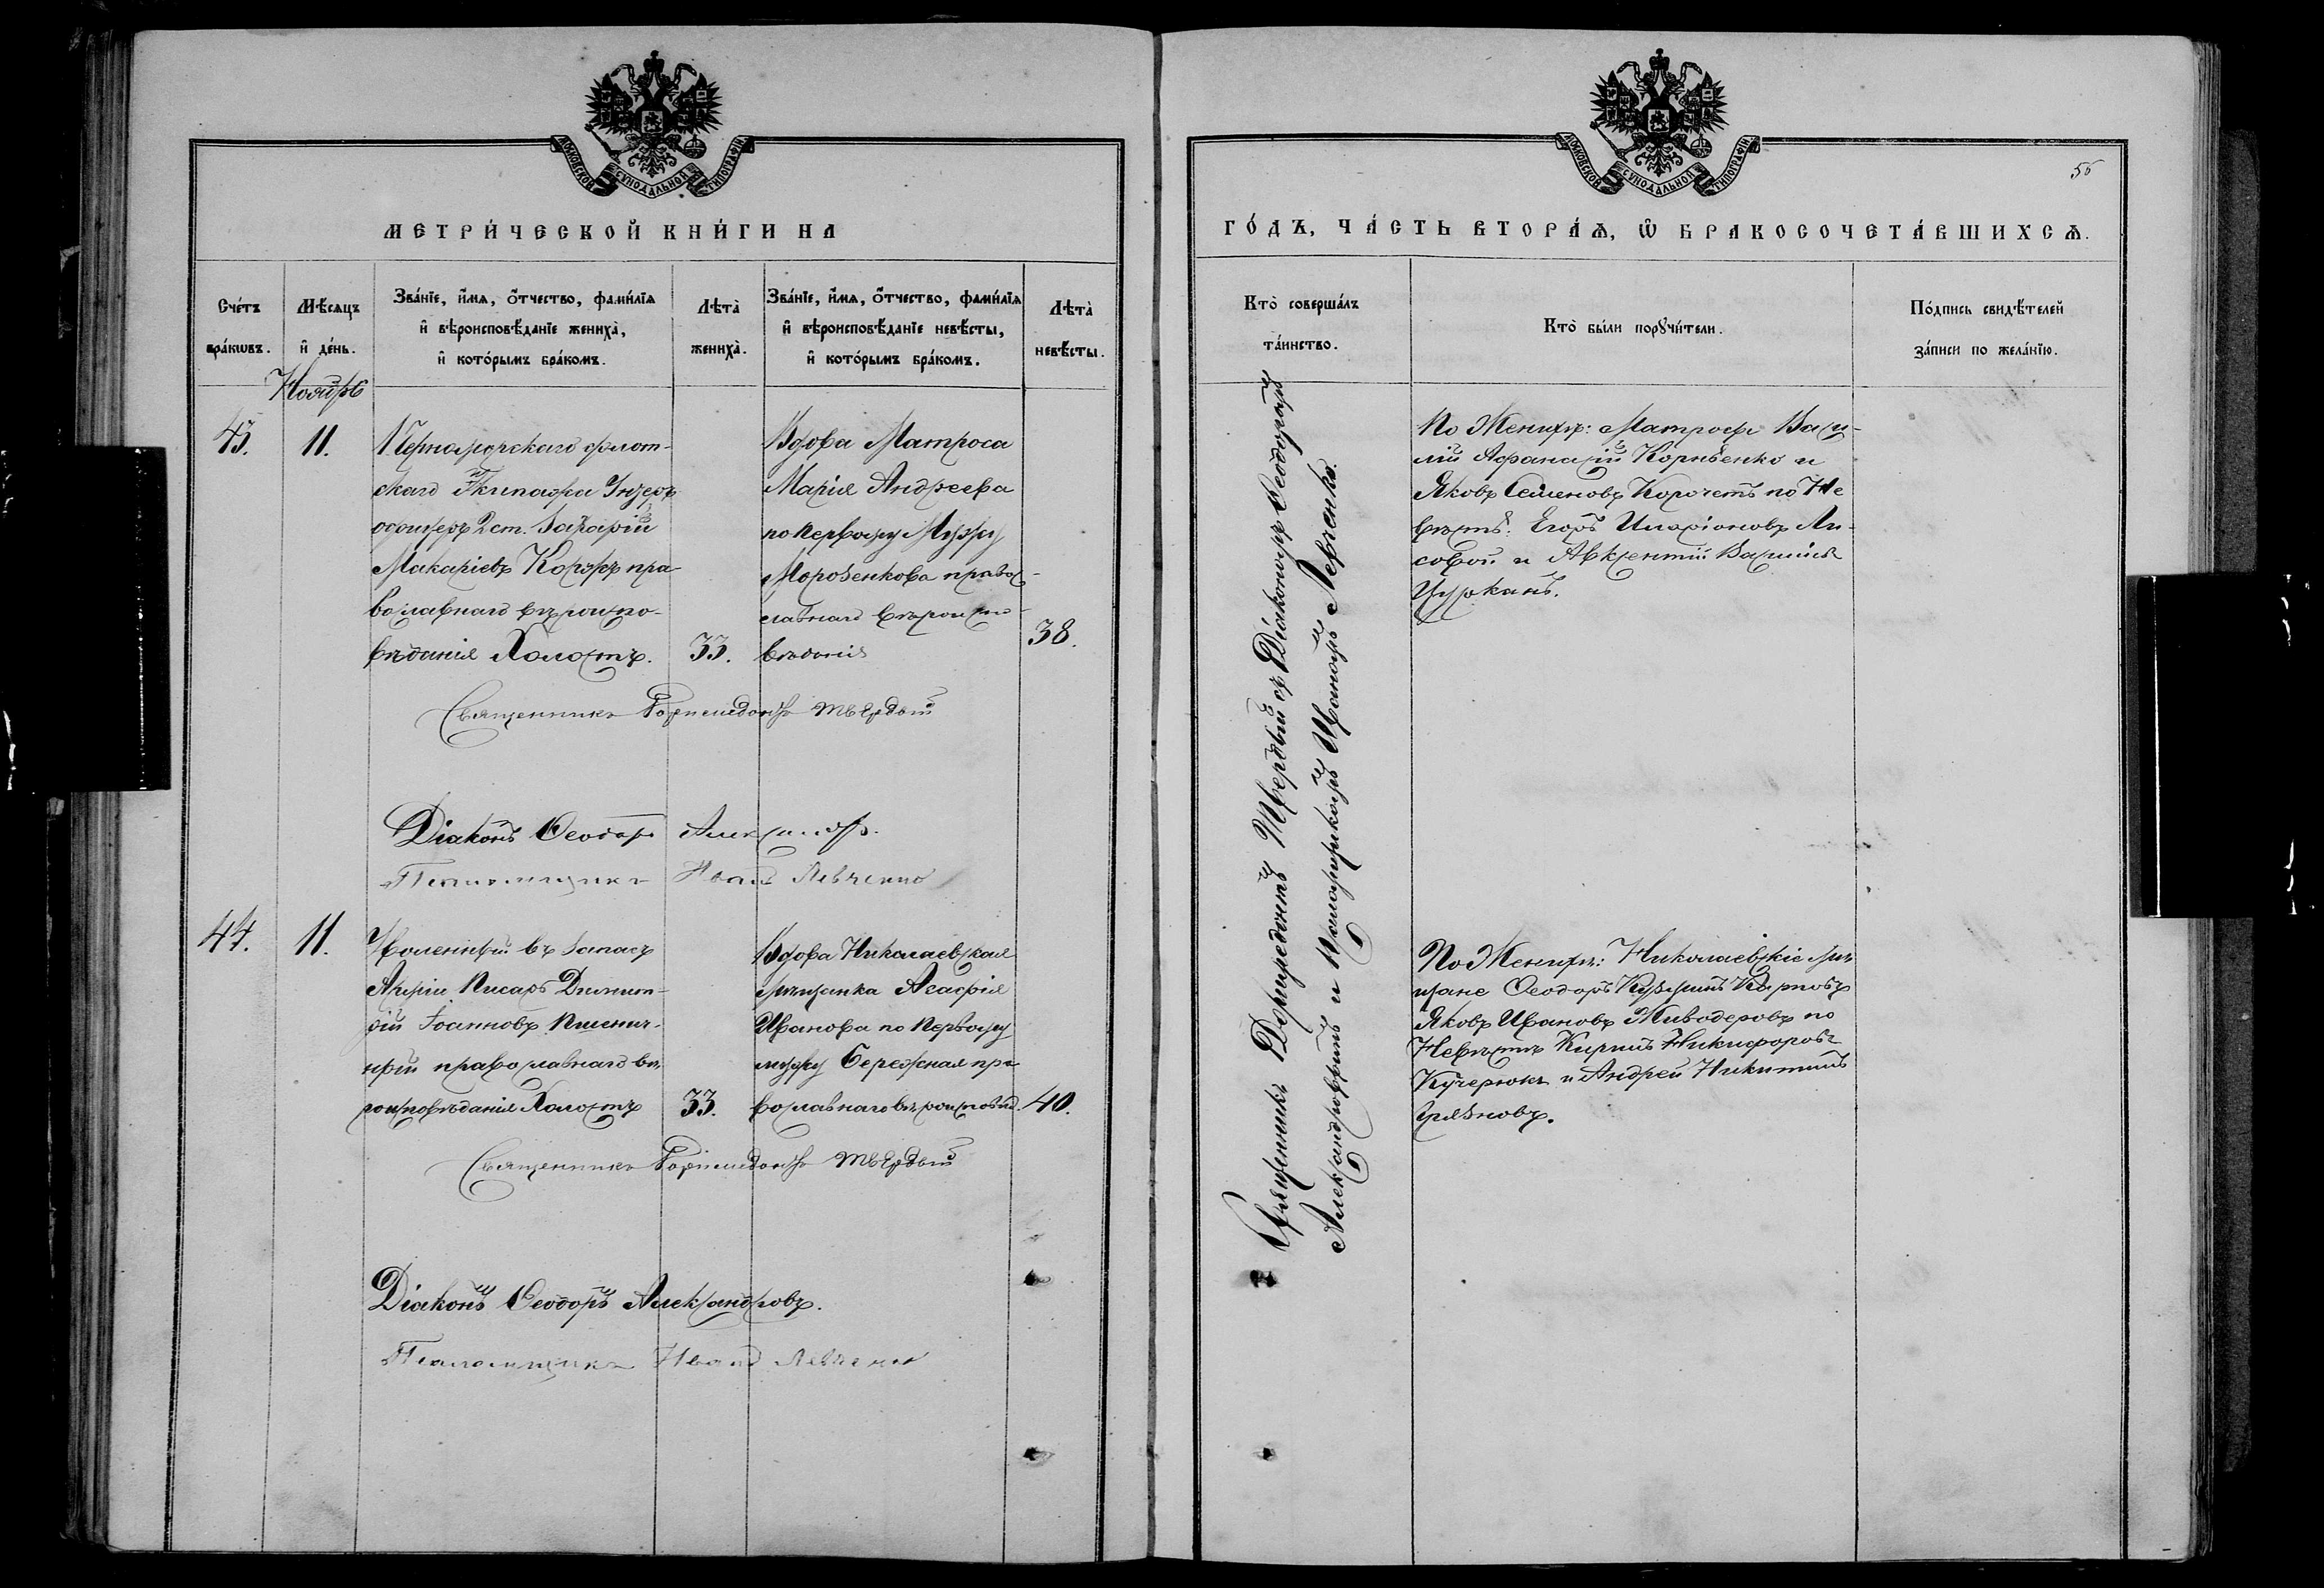 МОСКОВСКОЙ СѴНОДАЛЬНОЙ ТИПОГРАФІИ.
МЕТРИ́ЧЕСКОЙ КНИ́ГИ НА
Сче́тъ бра́кѡвъ.
Мѣ́сяцъ и де́нь.
Зва́нїе, и́мя, о́тчество, фами́лїя
и вѣроисповѣ́данїе жениха̀,
и кото́рымъ бра́комъ.
Лѣта̀ жениха̀.
Зва́нїе, и́мя, о́тчество, фами́лїя
и вѣроисповѣ́данїе невѣ́сты,
и кото́рымъ бра́комъ.
Лѣта̀ невѣ́сты.
Ноябрь
43.
11.
Черноморскаго флот-
скаго Экипажа Унтеръ
офицеръ 2 ст. Захарій
Макаріевъ Коржъ пра-
вославнаго вѣроиспо-
вѣданія Холостъ.
33.
Вдова Матроса
Марія Андреева
по первому Мужу
Морозенкова правос-
лавнаго вѣроиспо-
вѣданія
38.
Священникъ Твердый
Діаконъ Ѳеодоръ Александровъ.
Псаломщикъ Иванъ Левченко
44.
11.
Уволенный въ запасъ
Арміи Писарь Димит-
рій Іоанновъ Пшенич-
ный православнаго вѣ-
роисповѣданія Холостъ
33.
Вдова Николаевская
мѣщанка Агафія
Иванова по Первому
мужу Бережная пра-
вославнаго вѣроисповѣд.
40.
Священникъ Твердый
Діаконъ Ѳеодоръ Александровъ.
Псаломщикъ Иванъ Левченко
МОСКОВСКОЙ СѴНОДАЛЬНОЙ ТИПОГРАФІИ.
ГО́ДЪ, ЧА́СТЬ ВТОРА́Ѧ, Ѿ БРАКОСОЧЕТА́ВШИХСѦ.
Кто̀ соверша́лъ
та́инство.
Кто̀ бы́ли порꙋчи́тели.
По́дпись свидѣ́телей
за́писи по жела́нїю.
Священникъ Дормедонтъ Твердый съ Діакономъ Ѳеодоромъ
Александровымъ и Псаломщикомъ Иваномъ Левченко.
По Женихѣ: Матросы Васи-
лій Афанасій Корнѣенко и
Яковъ Семеновъ Корочетъ по Не
вѣстѣ: Егоръ Иларіоновъ Ли-
совой и Авксентій Васильевъ
Цурканъ.
По Женихѣ: Николаевскіе мѣ
щане Ѳеодоръ Кузьминъ Карповъ
Яковъ Ивановъ Живодеровъ по
Невѣстѣ Кириллъ Никифоровъ
Кучерюкъ и Андрей Никитинъ
Грязновъ.